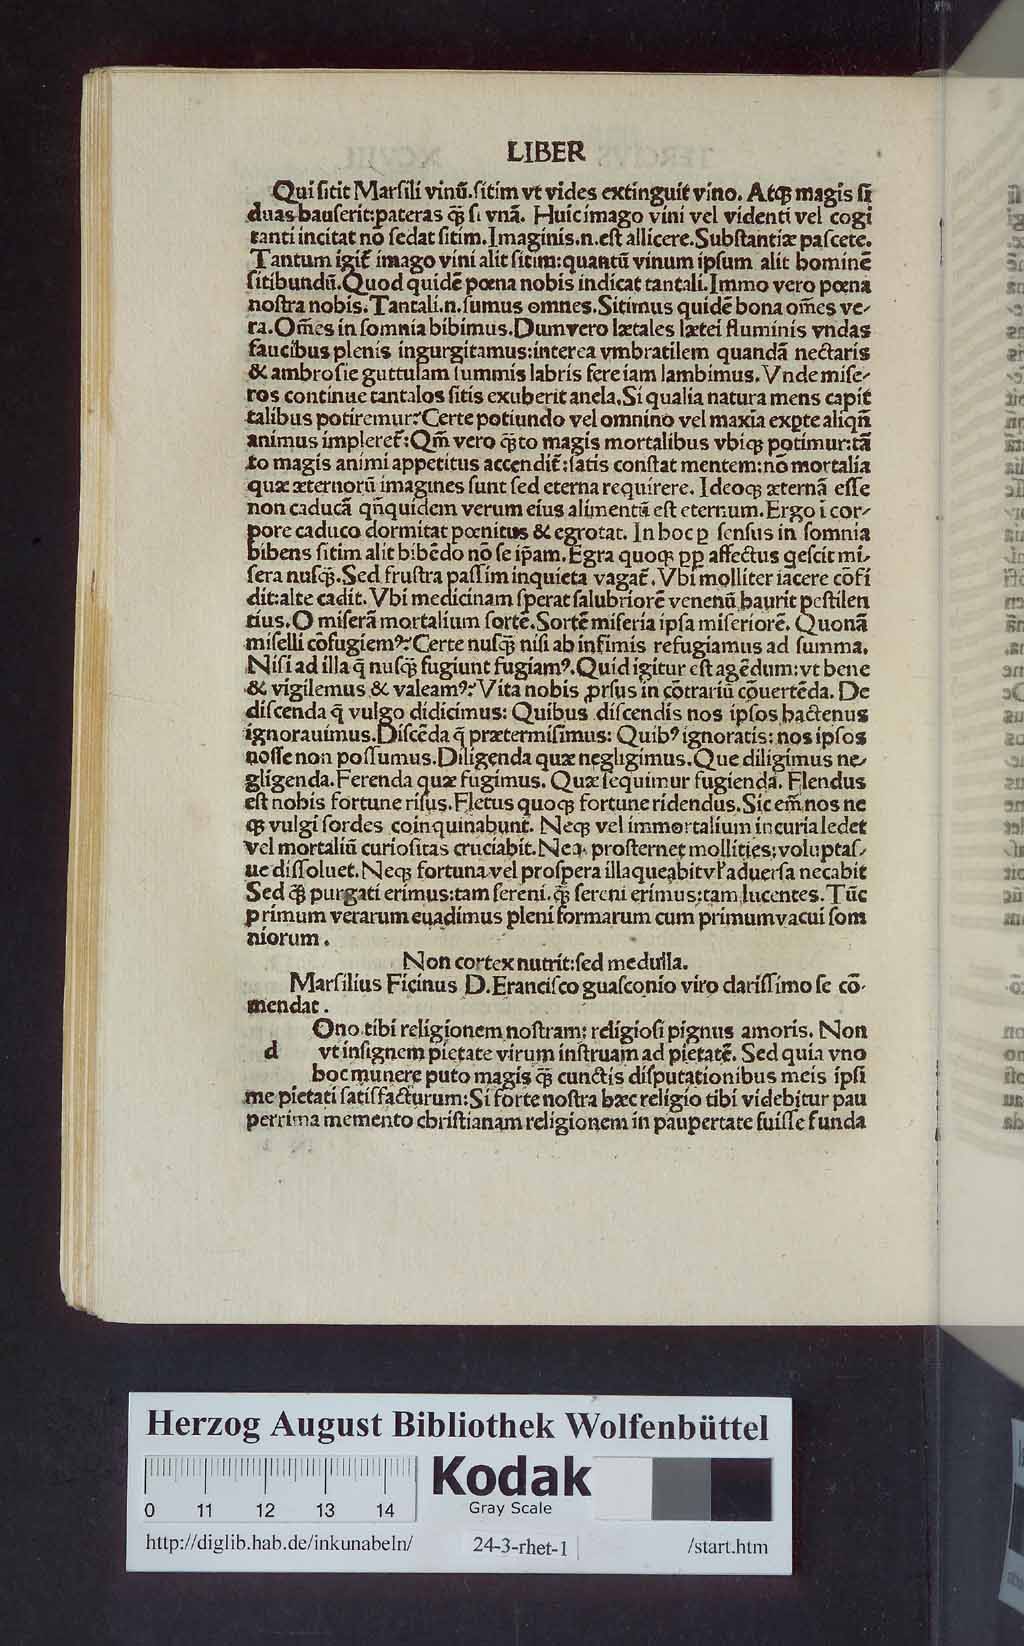 LIBER
Qui sitit Marsili vinū.sitim vt vides extinguit vino. Atqꝫ magis si
duas hauserit:pateras q̃ꝫ si vnā. Huic imago vini vel videnti vel cogi
tanti incitat nō sedat sitim.Imaginis.n.est allicere.Substantiæ pascere.
Tantum igit̄ imago vini alit sitim:quantū vinum ipsum alit hominē
sitibundū.Quod quidē pœna nobis indicat tantali.Immo vero pœna
nostra nobis.Tantali.n.sumus omnes.Sitimus quidē bona om̄es ve⸗
ra.Om̄es in somnia bibimus.Dum vero lætales lætei fluminis vndas
faucibus plenis ingurgitamus:interea vmbratilem quandā nectaris
& ambrosie guttulam summis labris fere iam lambimus. Vnde mise⸗
ros continue tantalos sitis exuberit anela.Si qualia natura mens capit
talibus potiremur:Certe potiundo vel omnino vel maxīa exꝑte aliqñ
animus impleret̄:Qm̄ vero q̃ꝫto magis mortalibus vbiqꝫ potimur:tā
to magis animi appetitus accendit̄:satis constat mentem:nō mortalia
quæ æternorū imagines sunt sed eterna requirere. Ideoqꝫ æternā esse
non caducā qñquidem verum eius alimentū est eternum. Ergo ī cor⸗
pore caduco dormitat pœnitus & egrotat. In hoc ꝑ sensus in somnia
bibens sitim alit bibēdo nō se ip̄am.Egra quoqꝫ ꝓꝑ affectus q̄scit mi⸗
sera nusq̃ꝫ.Sed frustra passim inquieta vagat̄. Vbi molliter iacere cōfi
dit:alte cadit. Vbi medicinam sperat salubriorē venenū haurit pestilen
tius.O miserā mortalium sortē.Sortē miseria ipsa miseriorē. Quonā
miselli cōfugiemꝰ:Certe nusq̃ꝫ nisi ab infimis refugiamus ad summa.
Nisi ad illa q̄ nusq̃ꝫ fugiunt fugiamꝰ.Quid igitur est agēdum:vt bene
& vigilemus & valeamꝰ:Vita nobis ꝓrsus in cōtrariū cōuertēda. De
discenda q̄ vulgo didicimus: Quibus discendis nos ipsos hactenus
ignorauimus.Discēda q̄ prætermisimus: Quibꝰ ignoratis: nos ipsos
nosse non possumus.Diligenda quæ negligimus.Que diligimus ne⸗
gligenda.Ferenda quæ fugimus. Quæ sequimur fugienda. Flendus
est nobis fortune risus.Fletus quoqꝫ fortune ridendus.Sic em̄ nos ne
qꝫ vulgi sordes coinquinabunt. Neqꝫ vel immortalium incuria ledet
vel mortaliū curiositas cruciabit.Neq. prosternet mollities;voluptas⸗
ue dissoluet.Neqꝫ fortuna vel prospera illaqueabit vl̕ aduersa necabit
Sed q̃ꝫ purgati erimus:tam sereni.q̃ꝫ sereni erimus:tam lucentes. Tūc
primum verarum euadimus pleni formarum cum primum vacui som
niorum.
Non cortex nutrit:sed medulla.
Marsilius Ficinus D.Francisco guasconio viro clarissimo se cō⸗
mendat.
Ono tibi religionem nostram: religiosi pignus amoris. Non
d vt insignem pietate virum instruam ad pietatē. Sed quia vno
hoc munere puto magis q̃ꝫ cunctis disputationibus meis ipsi
me pietati satisfacturum:Si forte nostra hæc religio tibi videbitur pau
perrima memento christianam religionem in paupertate fuisse funda
Herzog August Bibliothek Wolfenbüttel
Kodak
Gray Scale
0 11 12 13 14
http://diglib.hab.de/inkunabeln/ 24-3-rhet-1 /start.htm